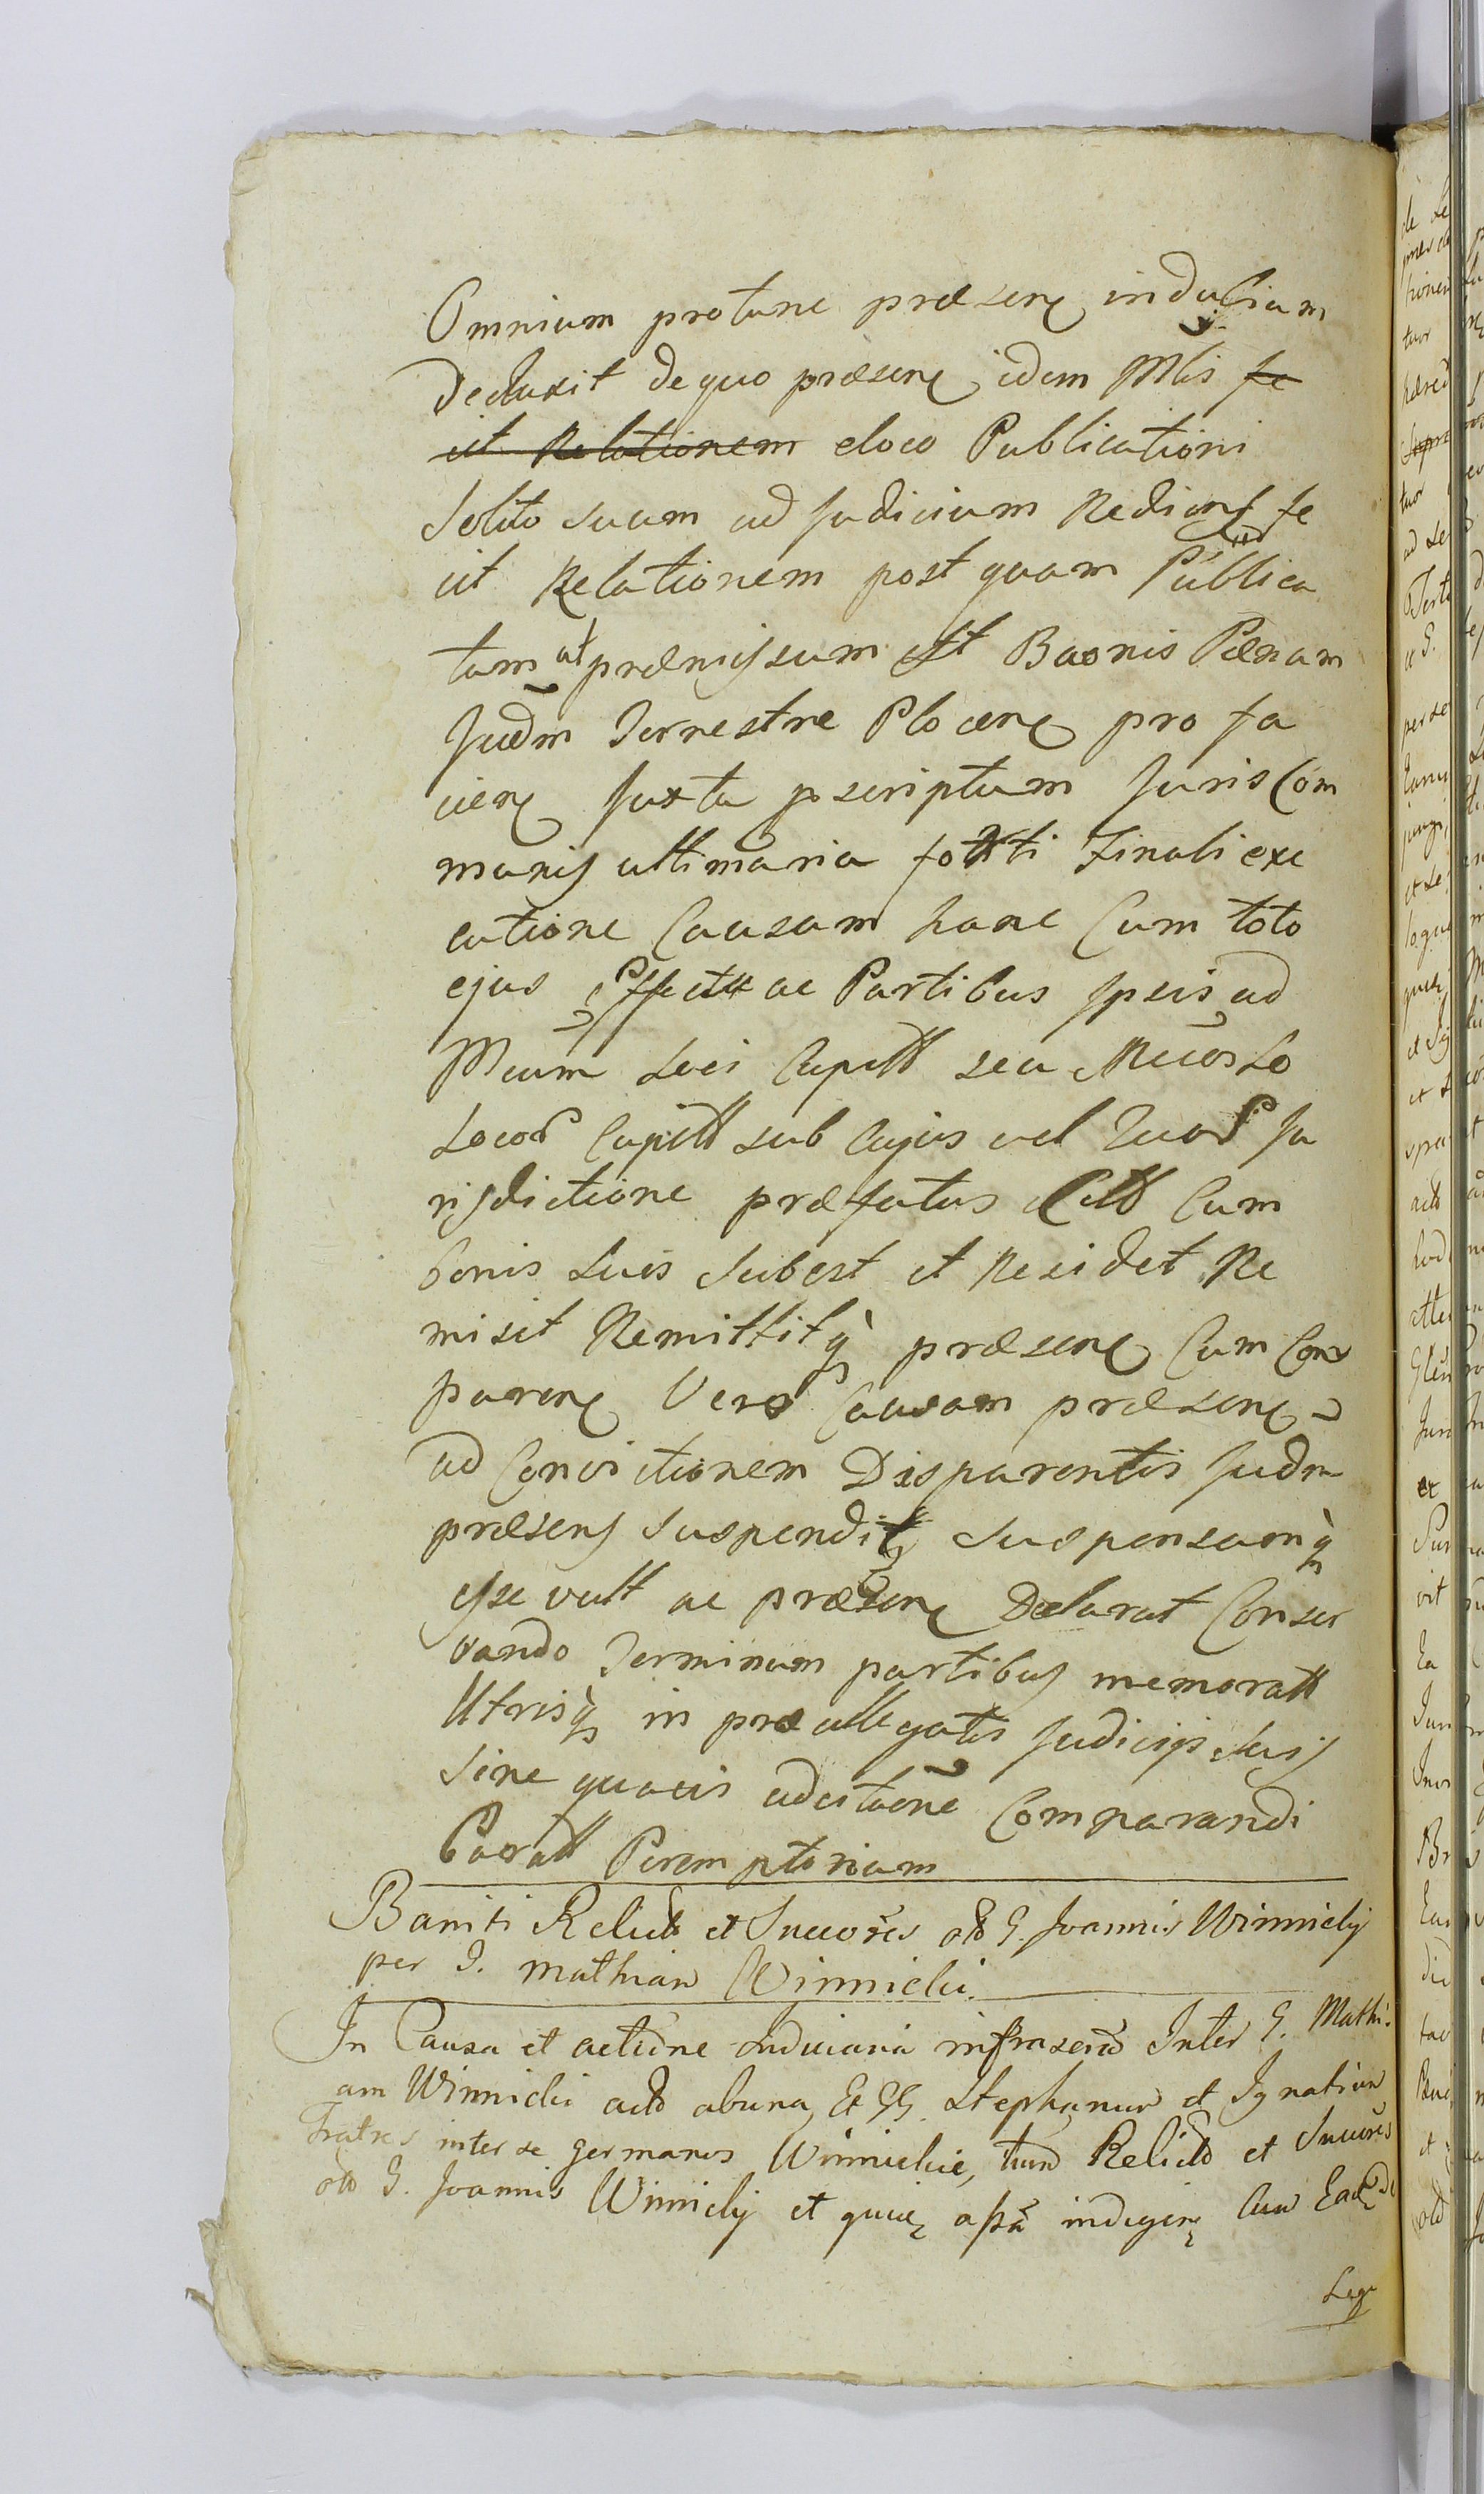 Omnium protunc præsenꝭ inducium
Deduxit de quo præsenꝭ idem Mlis fe
cit Relationem eloco Publicationi
Solito suum ad Judicium Rediens fe
cit Relationem post quam Publica
tam ut præmissum est Baonis Pænam
Judm Terrestre Plocenꝭ pro fa
cienꝭ Juxta pscriptum Juris Com
munis ultimaria Finali exe
cutione Causam hanc Cum toto
ejus Effectu ac Partibus Ipsis ad
Loci Capitt seu
Locor Capitt sub Cujus vel Ju
risdictione præfatus Citt Cum
bonis Suis Subest et Residet Re
misit Remittitq præsenꝭ Cum Com
parenꝭ Vero Causam præsenꝭ
ad Convictionem Disparentis Judm
præsens Suspendit Suspensamq
esse vult ac præsenꝭ Declarat Conser
vando Terminum partibus memoratt
Utrisq in præallegatis Judicijs Suis
Sine quavis adcitaone Comparandi
Peremptorium
Baniti Relict et Succores olo G. Joannis Winnicky
per G. Mathian Winnicki.
In Causa et actione Judiciaria infrascr Inter G. Mathi-
am Winnicki act abuna, Et GG. Stephanum et Ignatium
Fratres inter se germanos Winnickie, tum Relict et Succres
olo G. Joannis Winnicky et Cum
Lege